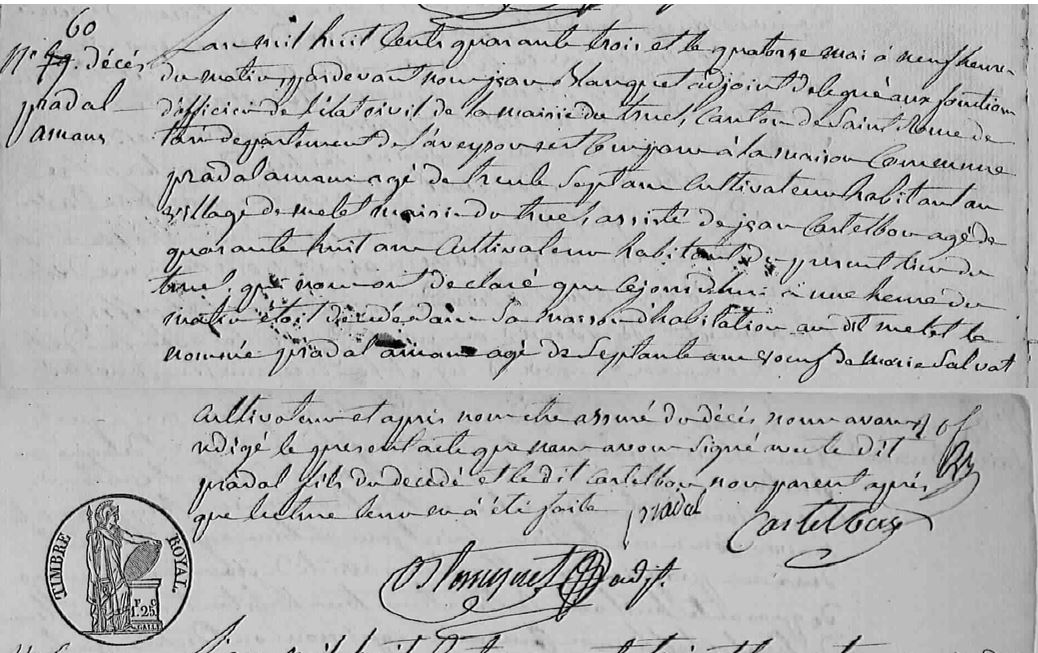 60
N° 59. décès
pradal
amans
L'an mil huit cents quarante trois et le quatorze mai à neuf heures
du matin pardevant nous jean Blanquet adjoint delegué aux fonctions
d'officier de l'état civil de la mairie du truel, Canton de Saint Rome de
tarn departement de l'aveyron est Comparu à la maison Commune
pradal amans agé de trente Sept ans Cultivateur habitant au
village de melet mairie du truel, assisté de jean Castelbou agé de
quarante huit ans Cultivateur habitant du present lieu du
truel, qui nous ont declaré que Cejourdhui à une heure du
matin étoit décédé dans Sa maison d'habitation au dit melet le
nommé pradal amans agé de Septante ans veuf de marie Salvat
Cultivateur et aprés nous etre assuré du décés nous avons
redigé le present acte que nous avons Signé avec le dit
pradal fils du decedé et le dit Castelbou non parent aprés
que lecture leur en a été faite
pradal
Castelbou
Blanquet adjt.
TIMBRE ROYAL
1.25